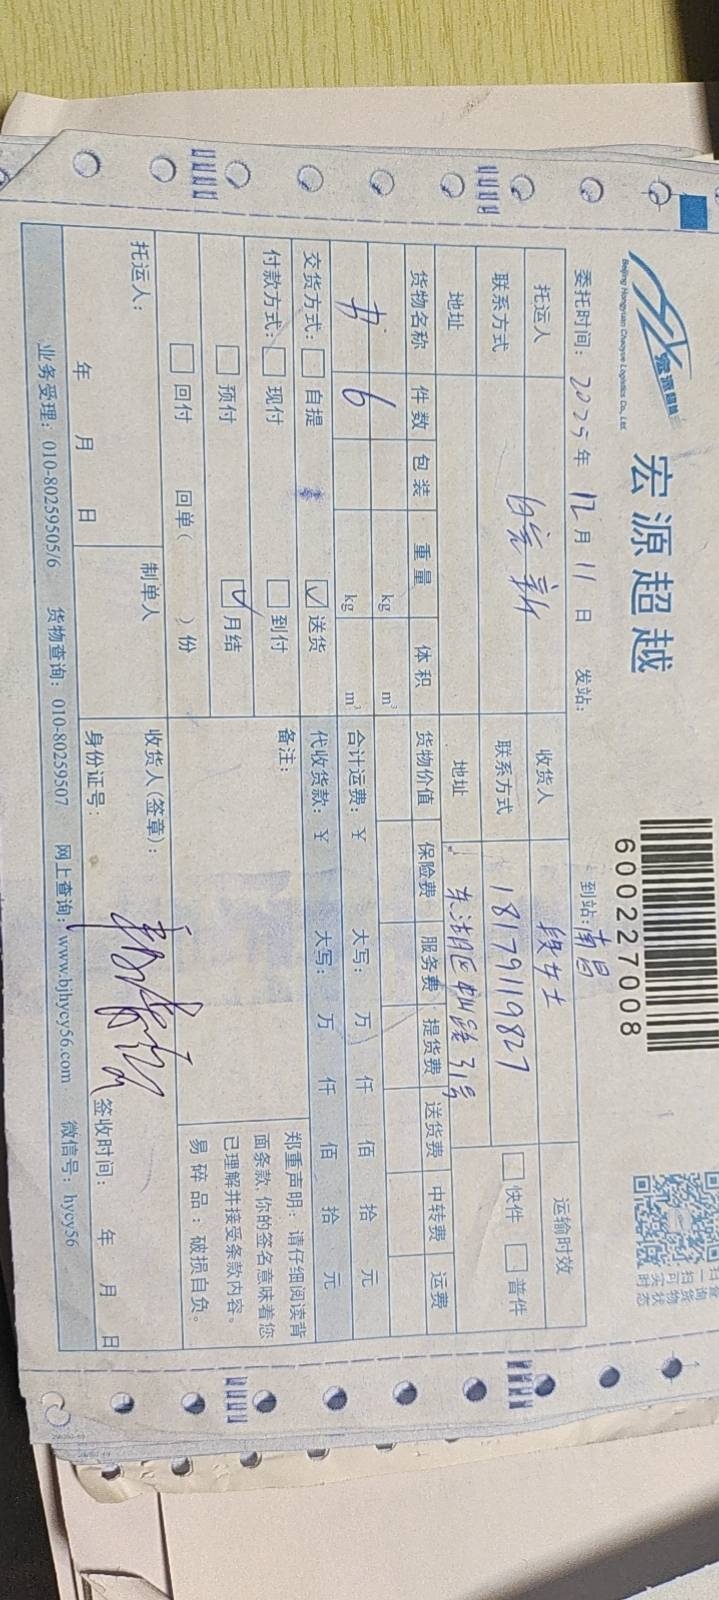 宏源超越
宏源超越
Beijing Hongyuan Chaoyue Logistics Co., Ltd.
600227008
扫一扫
查询货物
可实时状态
委托时间：2025年12月11日 发站： 到站：南昌
托运人 皖新 收货人 段女士 运输时效
联系方式 联系方式 18179119827 快件 普件
地址 地址 东湖区 路31号
货物名称 件数 包装 重量 体积 货物价值 保险费 服务费 提货费 送货费 中转费 运费
kg m³
书 6 kg m³ 合计运费：¥ 大写： 万 仟 佰 拾 元
交货方式： 自提 送货 代收货款：¥ 大写： 万 仟 佰 拾 元
付款方式： 现付 到付 备注：
预付 月结
回付 回单（ ）份
郑重声明：请仔细阅读背
面条款，你的签名意味着您
已理解并接受条款内容。
易碎品：破损自负。
托运人： 制单人 收货人(签章)：
年 月 日 身份证号： 签收时间： 年 月 日
业务受理：010-80259505/6 货物查询：010-80259507 网上查询：www.bjhycy56.com 微信号：hycy56